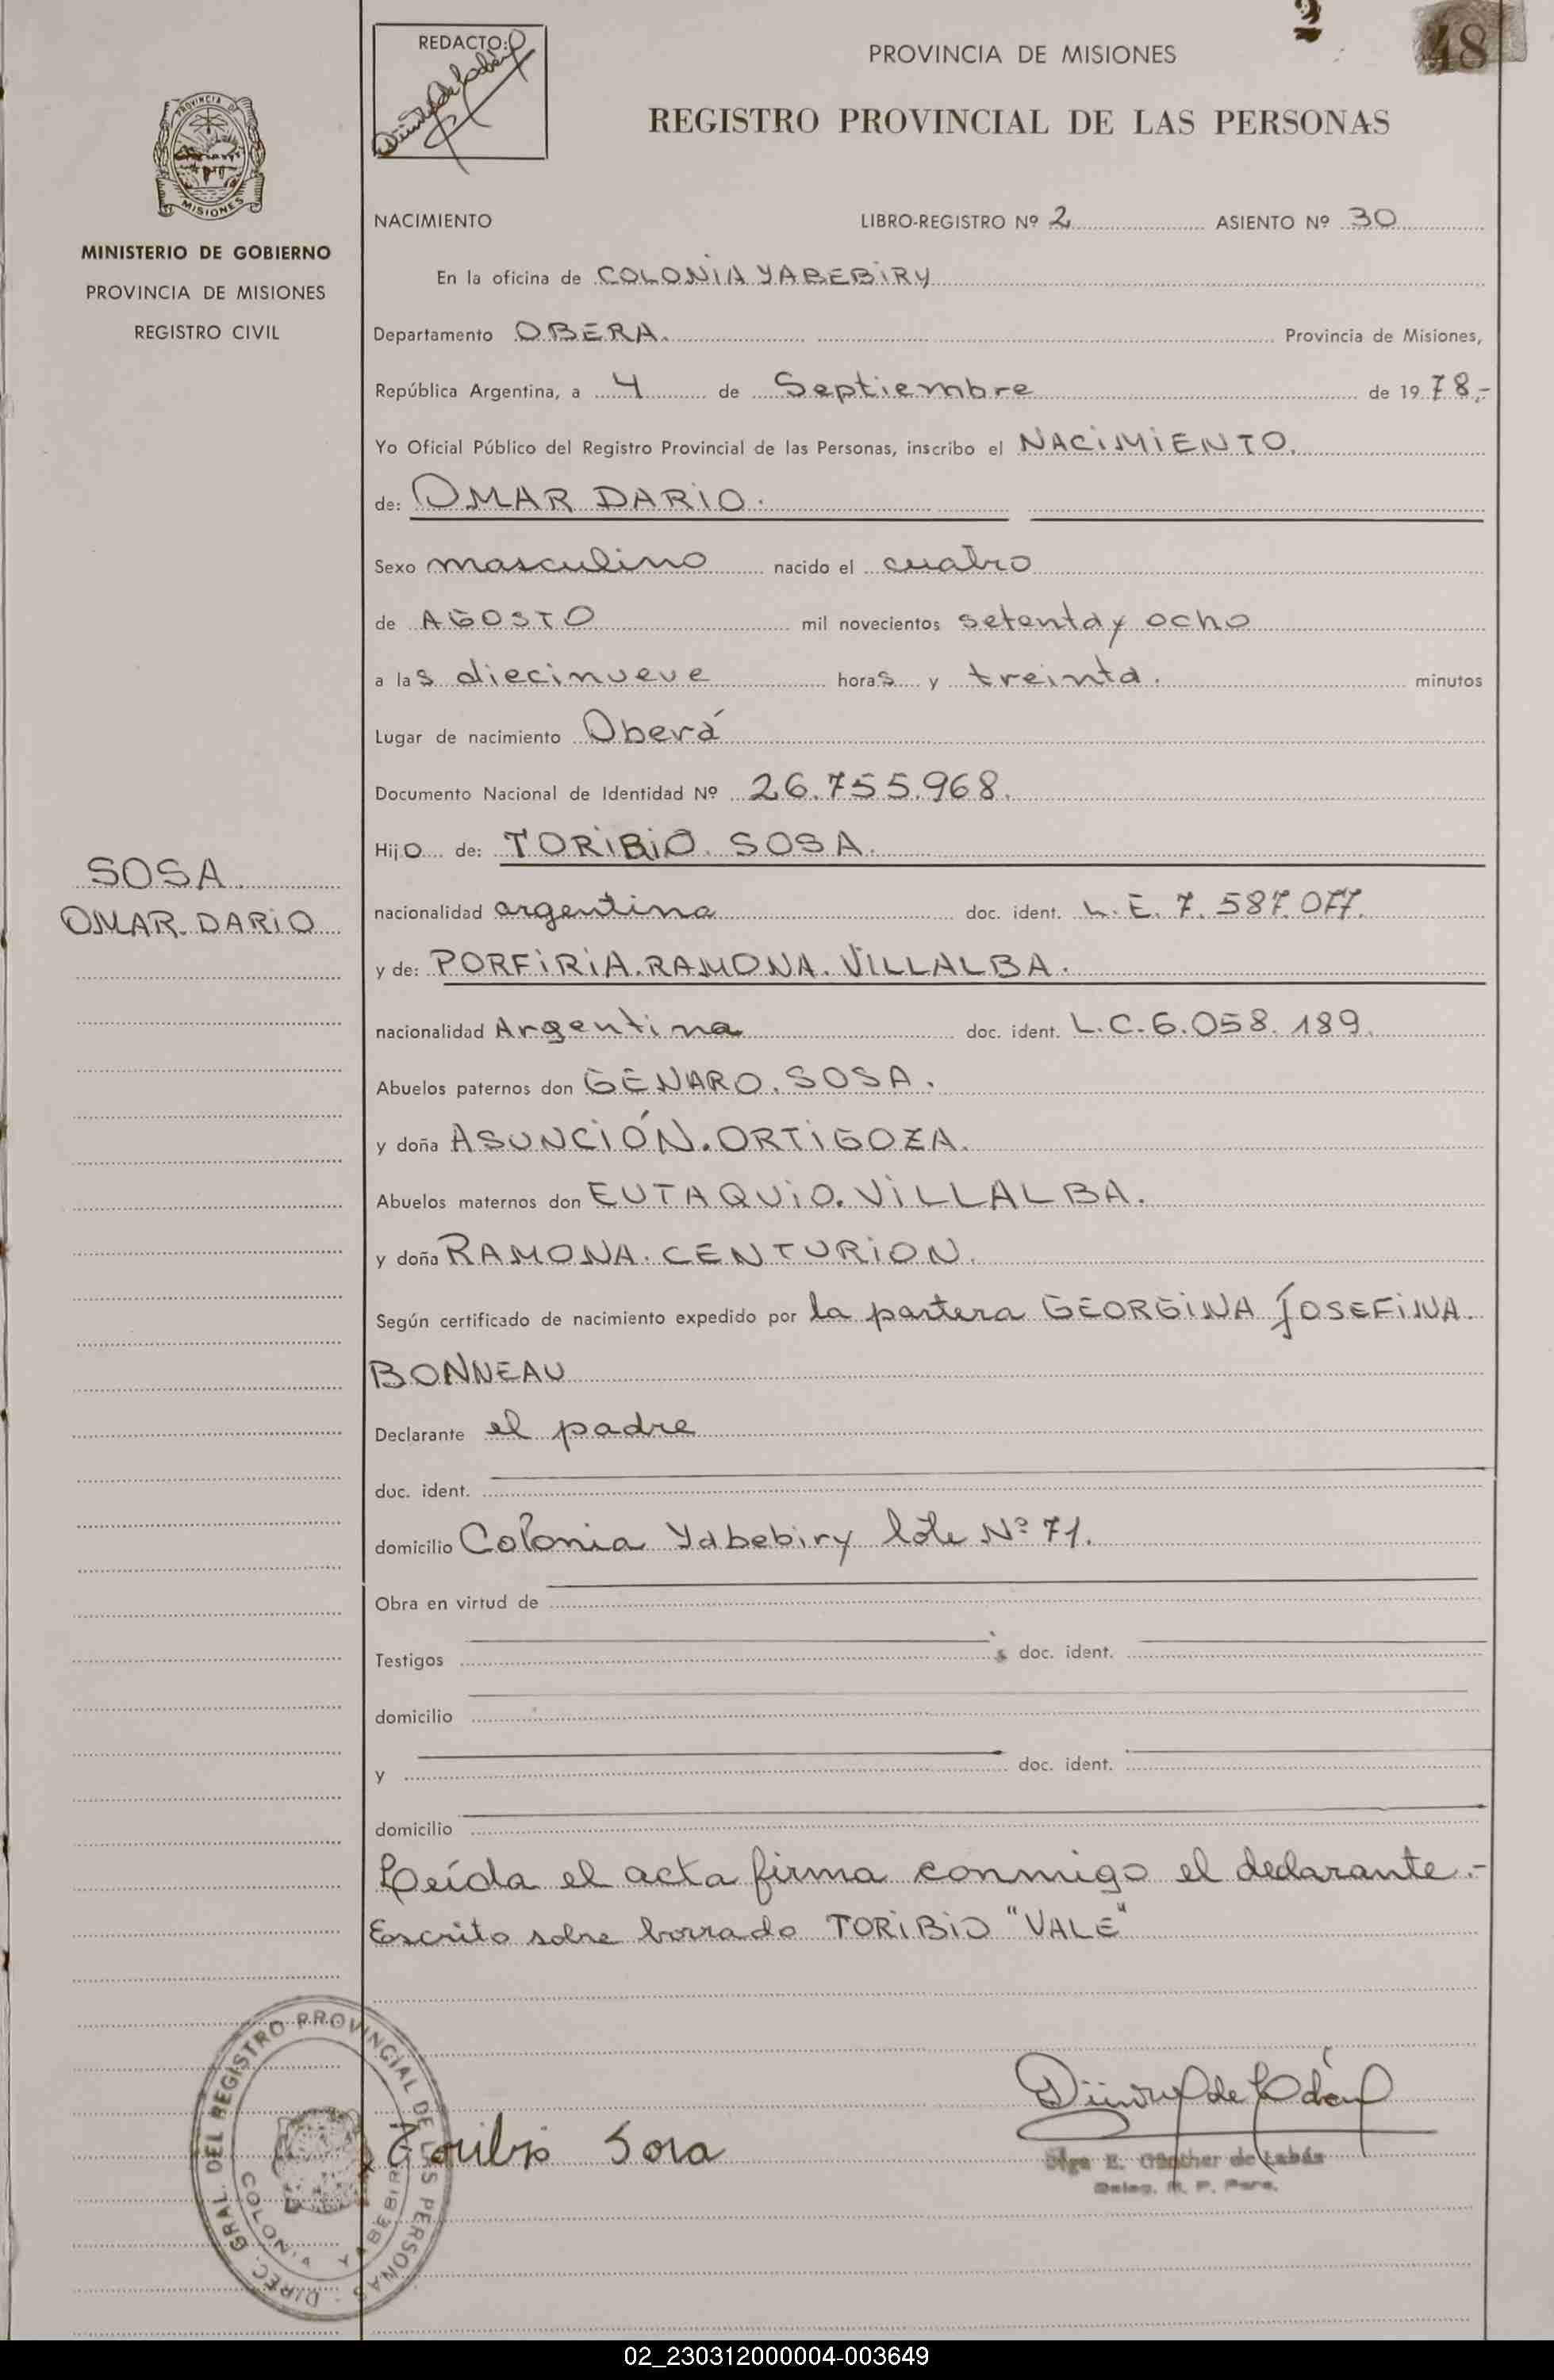 2
48
REDACTO:
PROVINCIA DE MISIONES
REGISTRO PROVINCIAL DE LAS PERSONAS
PROVINCIA DE
MISIONES
MINISTERIO DE GOBIERNO
PROVINCIA DE MISIONES
REGISTRO CIVIL
NACIMIENTO LIBRO-REGISTRO Nº 2 ASIENTO Nº 30
En la oficina de COLONIA YABEBIRY
Departamento OBERA. Provincia de Misiones,
República Argentina, a 4 de Septiembre de 1978.-
Yo Oficial Público del Registro Provincial de las Personas, inscribo el NACIMIENTO.
de: OMAR DARIO.
Sexo masculino nacido el cuatro
de AGOSTO mil novecientos setenta y ocho
a las diecinueve horas y treinta. minutos
Lugar de nacimiento Oberá
Documento Nacional de Identidad Nº 26.755.968.
Hijo de: TORIBIO. SOSA.
SOSA.
OMAR. DARIO
nacionalidad argentina doc. ident. L.E. 7.587.077.
y de: PORFIRIA. RAMONA. VILLALBA.
nacionalidad Argentina doc. ident. L.C. 6.058.189.
Abuelos paternos don GENARO. SOSA.
y doña ASUNCIÓN. ORTIGOZA.
Abuelos maternos don EUTAQUIO. VILLALBA.
y doña RAMONA. CENTURION.
Según certificado de nacimiento expedido por la partera GEORGINA JOSEFINA.
BONNEAU
Declarante el padre
doc. ident.
domicilio Colonia Yabebiry lote Nº 71.
Obra en virtud de
Testigos doc. ident.
domicilio
y doc. ident.
domicilio
Leída el acta firma conmigo el declarante.-
Escrito sobre borrado TORIBIO "VALE"
DIREC. GRAL. DEL REGISTRO PROVINCIAL DE LAS PERSONAS
COLONIA YABEBIRI
Toribio Sosa
Olga E. Günther de Labás
Deleg. R. P. Pers.
02_230312000004-003649